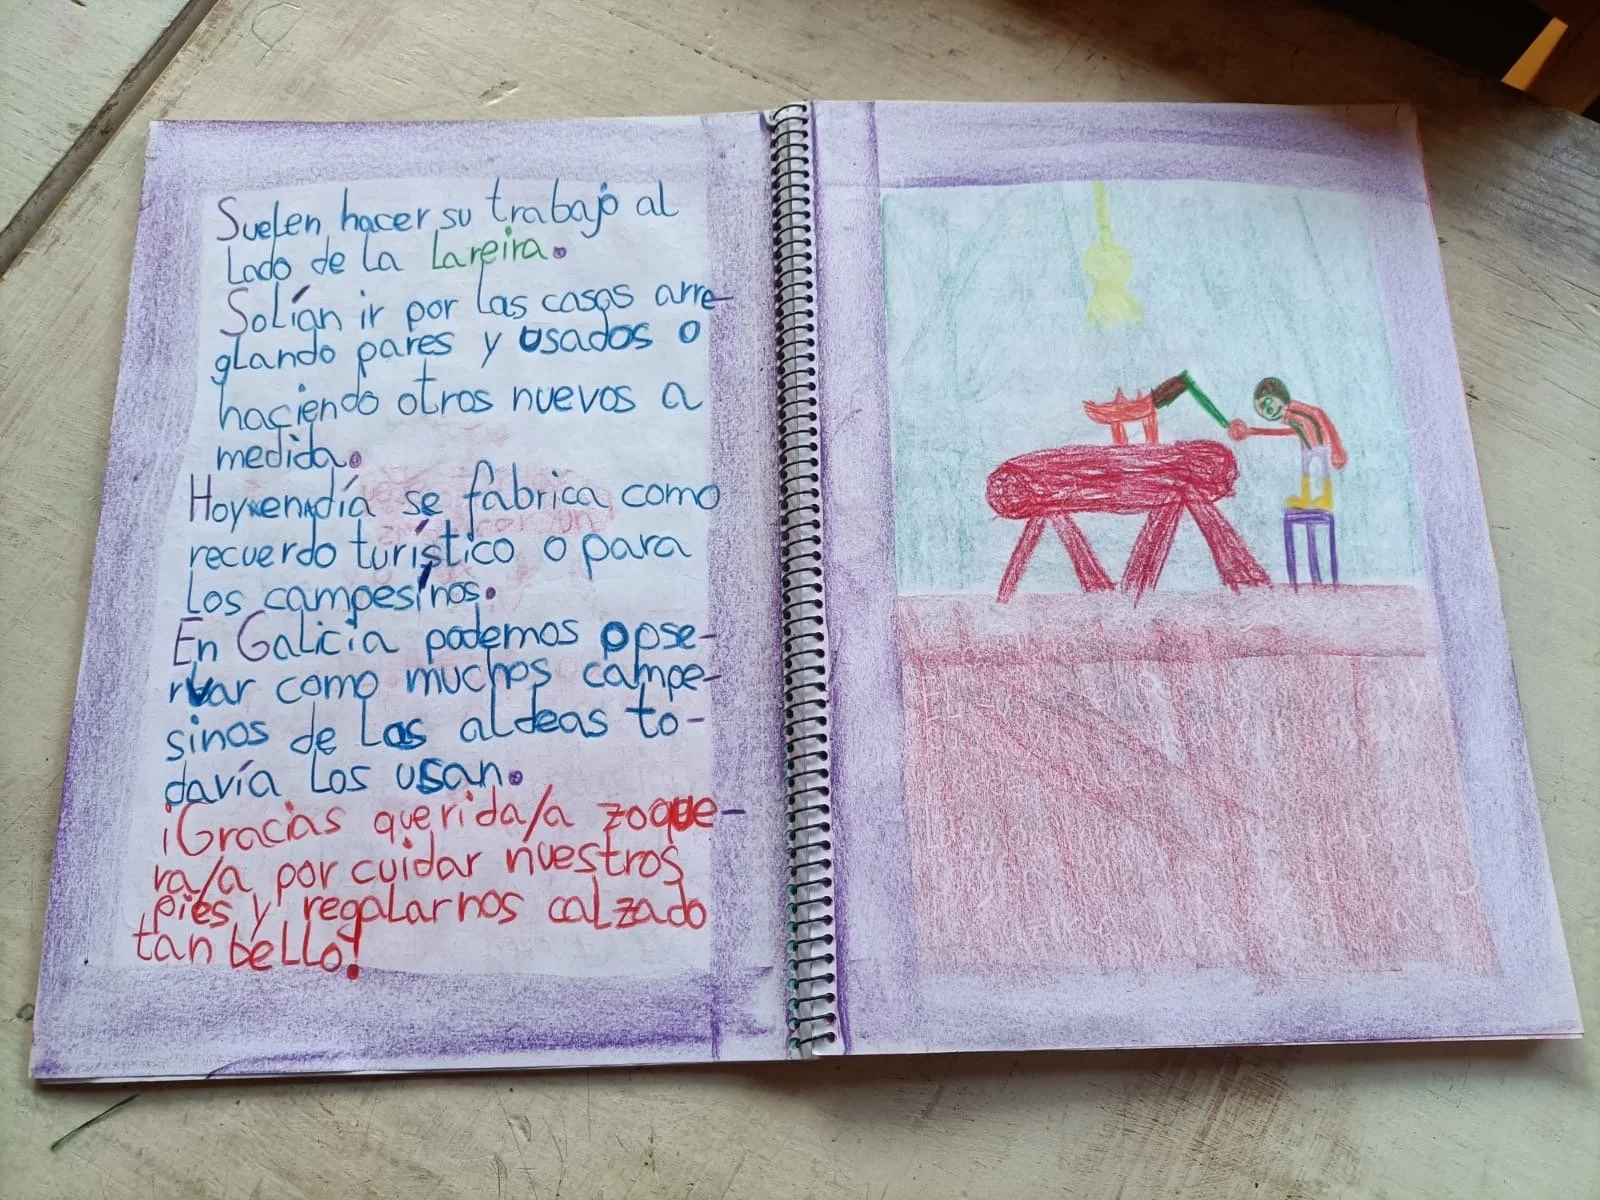 Suelen hacer su trabajo al
lado de la Lareira.
Solían ir por las casas arre-
glando pares y usados o
haciendo otros nuevos a
medida.
Hoy en día se fabrica como
recuerdo turístico o para
los campesinos.
En Galicia podemos opse-
rvar como muchos campe-
sinos de las aldeas to-
davía los usan.
¡Gracias querida/a zoque-
ra/a por cuidar nuestros
pies y regalarnos calzado
tan bello!